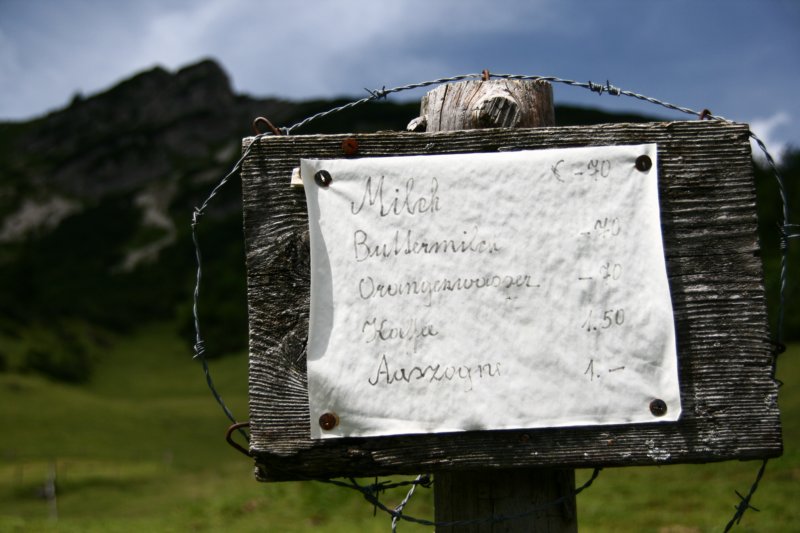 Milch € -70
Buttermilch -70
Orangenwasser -70
Kaffee 1.50
Auszogne 1.-